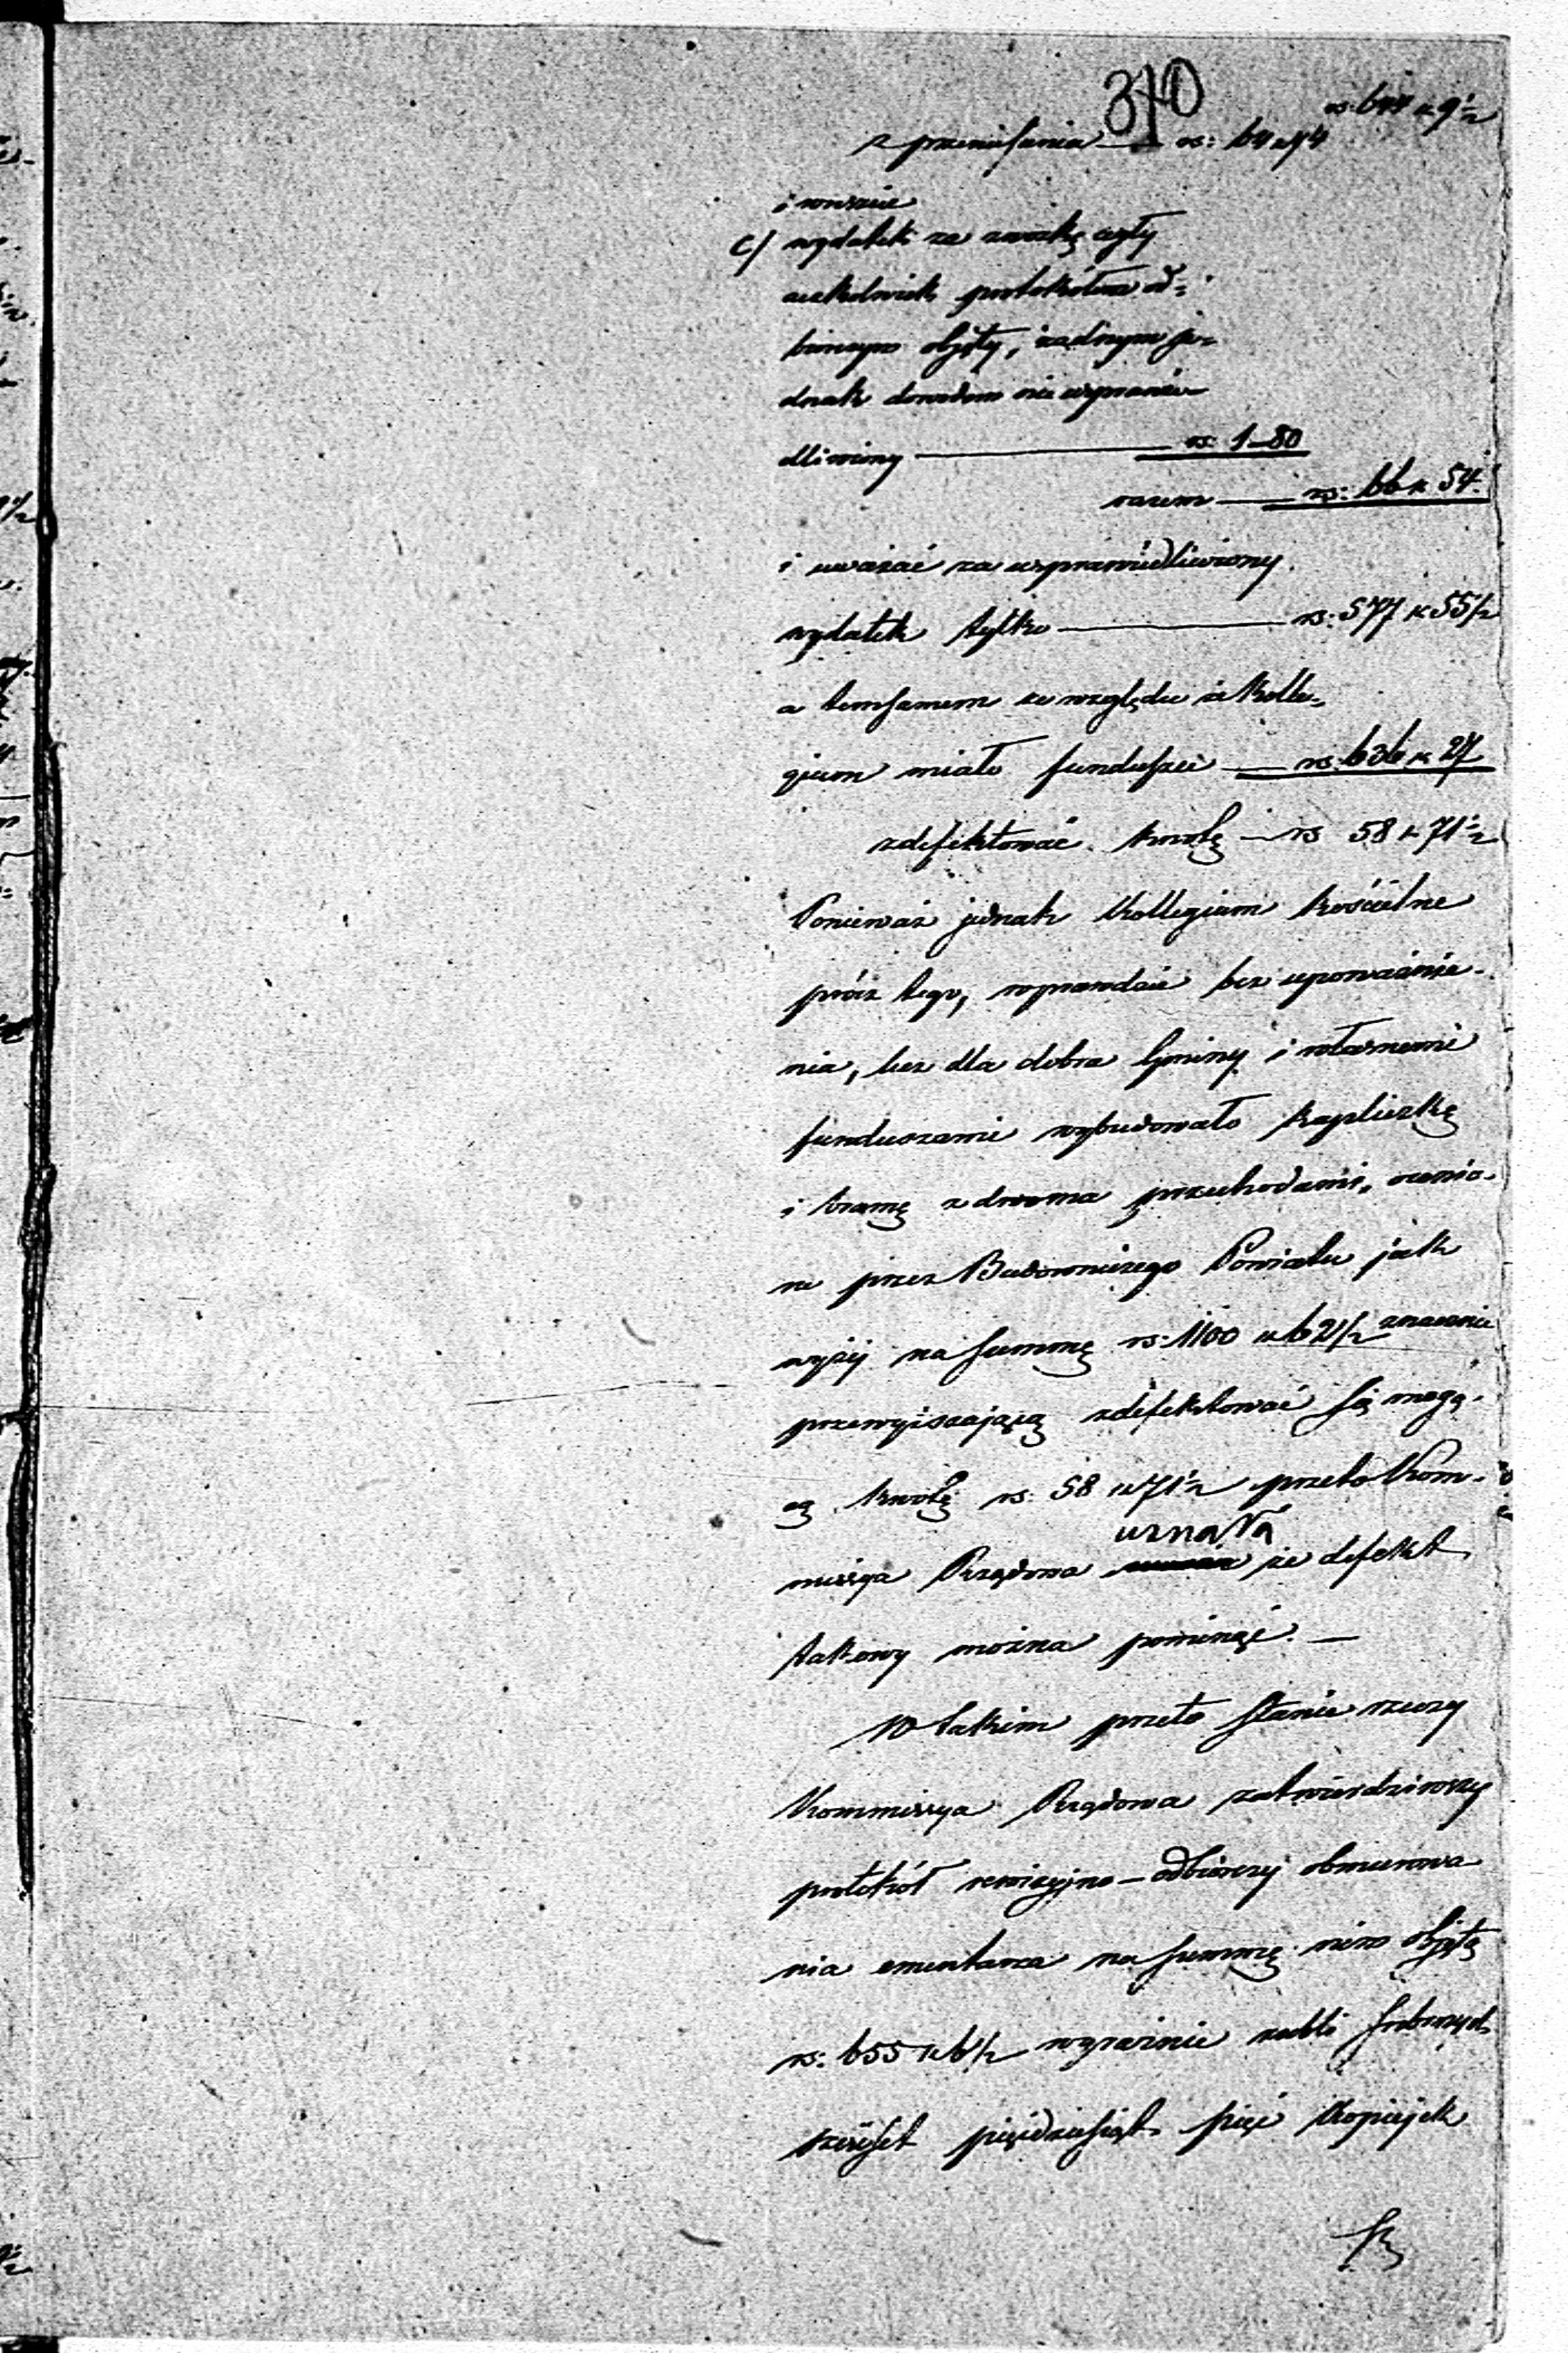 370
rs: 644 k 9½
z przeniesienia — rs: 64 k 74
i wreszcie
c/ wydatek za zwózkę cegły
aczkolwiek protokółem od=
biorczym objęty, żadnym je=
dnak dowodem nie usprawie-
dliwiony — rs: 1-80
razem — rs: 66 k 54.
i uważać za usprawiedliwiony.
wydatek tylko — rs: 577 k 55½
a temsamem ze względu że Kolle=
gium miało funduszu — rs: 636 k 27
zdefektować kwotę — rs 58 k 71½
Ponieważ jednak Kollegium Kościelne
prócz tego, wprawdzie bez upoważnie-
nia, lecz dla dobra Gminy i własnemi
funduszami wybudowało kapliczkę
i bramę z dwoma przechodami, ocenio-
ne przez Budowniczego Powiatu jak
wyżej na summę rs: 1100 k 62½ znacznie
przewyższającą zdefektować się mogą-
cą kwotę rs: 58 k 71½ przeto Kom-
missya Rządowa uznała że defekt
takowy można pominąć. —
W takim przeto stanie rzeczy
Kommissya Rządowa zatwierdziwszy
protokół rewizyjno-odbiorczy obmurowa
nia cmentarza na summę nim objętą
rs: 655 k 6½ wyraźnie rubli srebrnych
sześćset pięćdziesiąt pięć kopiejek